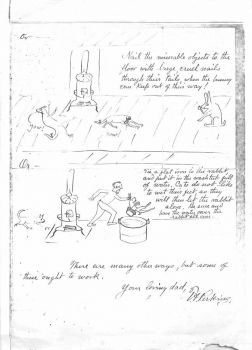 Or
Nail the miserable objects to the
floor with large cruel nails
through their tails, when the bunny
can keep out of their way!
Or
Tie a flat iron to the rabbit,
and put it in the washtub full
of water. Cats do not like
to wet their feet, so they
will then let the rabbit
alone. Be sure and
have the water over the
rabbit's
There are many other ways, but some of
these ought to work.
Your loving dad,